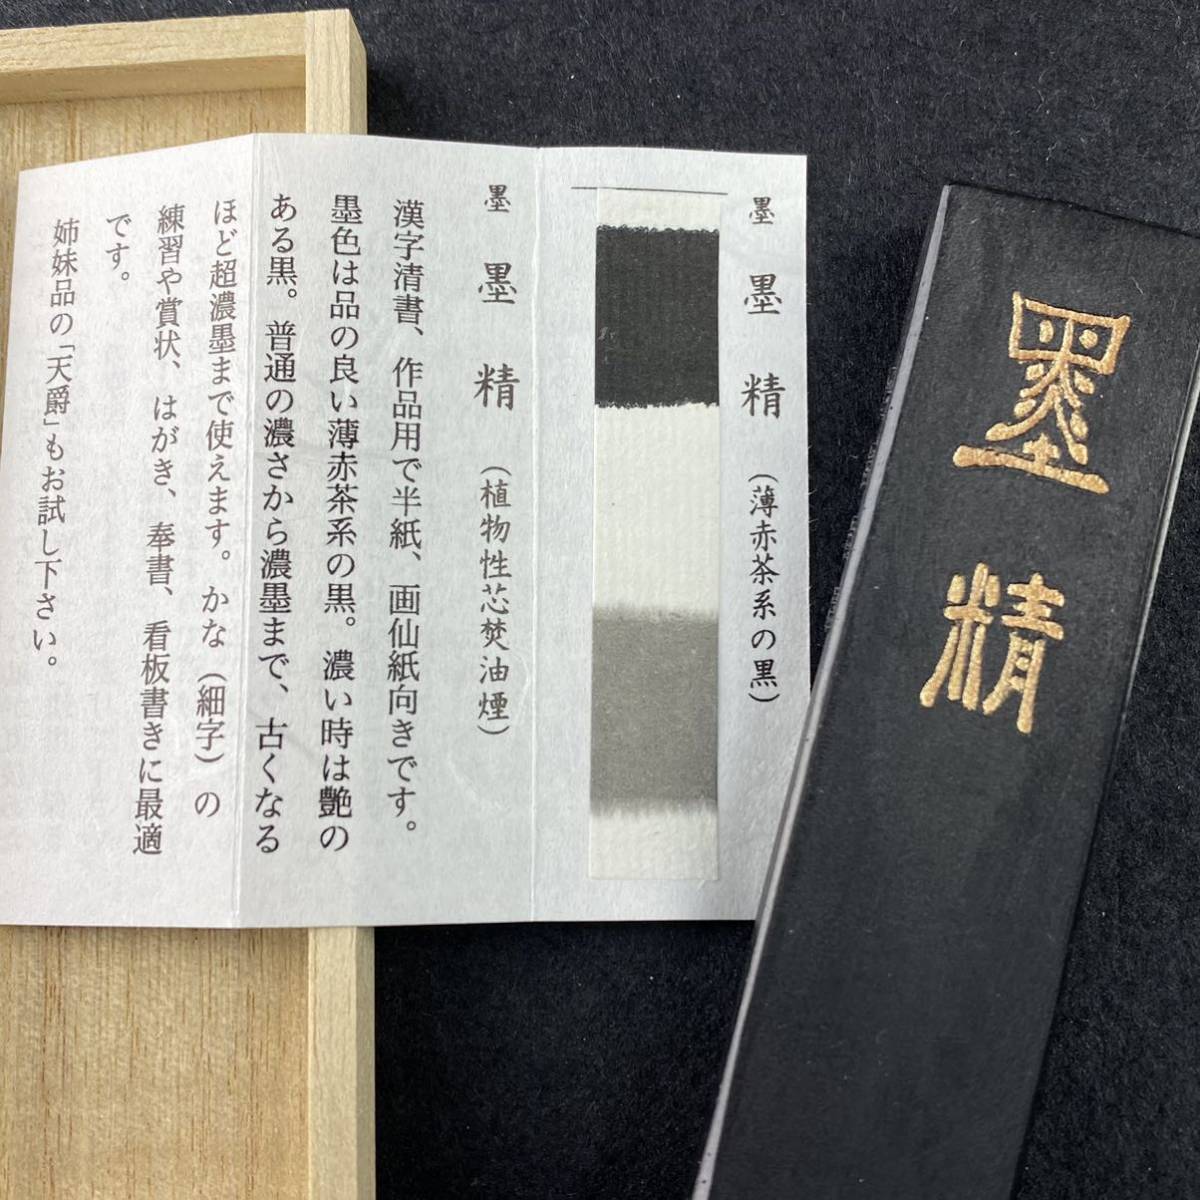 墨精
墨 墨精 (薄赤茶系の黒)
墨 墨精 (植物性芯焚油煙)
漢字清書、作品用で半紙、画仙紙向きです。
墨色は品の良い薄赤茶系の黒。濃い時は艶の
ある黒。普通の濃さから濃墨まで、古くなる
ほど超濃墨まで使えます。かな(細字)の
練習や賞状、はがき、奉書、看板書きに最適
です。
姉妹品の「天爵」もお試し下さい。